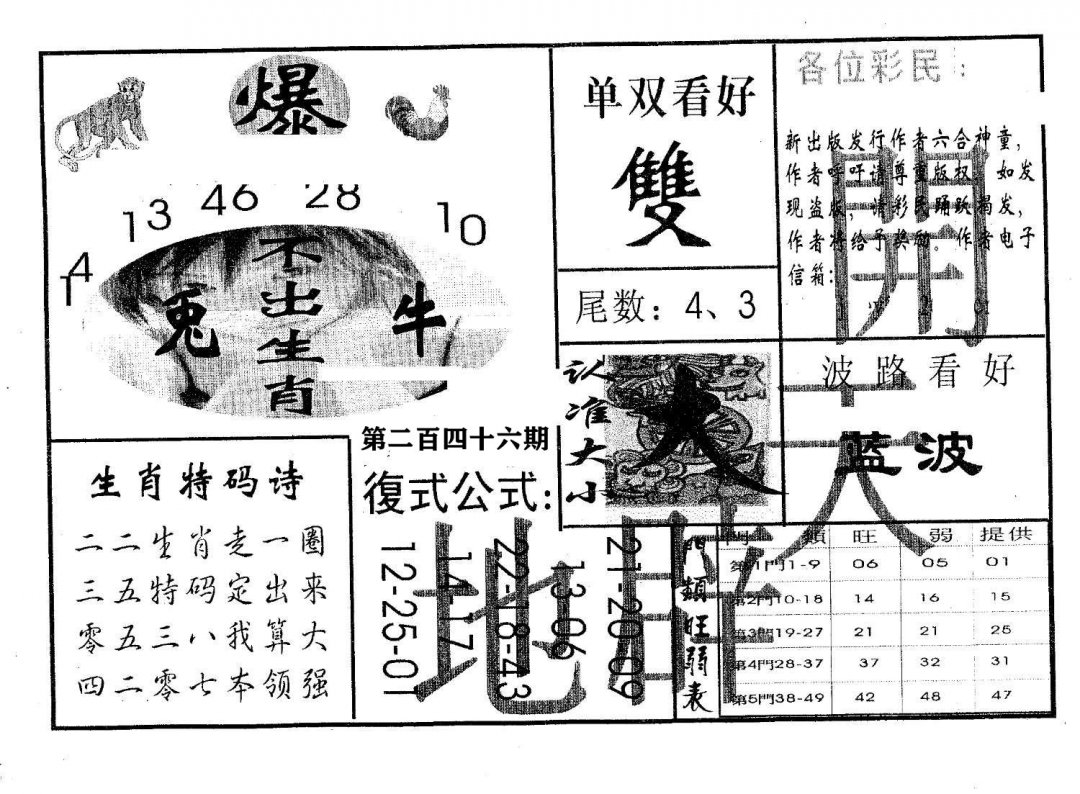 爆
46 28
13
10
14
不出生肖
兔
牛
单双看好
雙
尾数：4、3
各位彩民：
新出版发行作者六合神童，
作者呼吁请尊重版权。如发
现盗版，请彩民踊跃揭发，
作者将给予奖励。作者电子
信箱：
認准大小
大
波路看好
蓝波
開天闢地
生肖特码诗
二二生肖走一圈
三五特码定出来
零五三八我算大
四二零七本领强
第二百四十六期
復式公式：
12-25-01
14-17
22-18-43
13-06
21-20-09
門類旺弱表
門 類 旺 弱 提供
第1門1-9 06 05 01
第2門10-18 14 16 15
第3門19-27 21 21 25
第4門28-37 37 32 31
第5門38-49 42 48 47